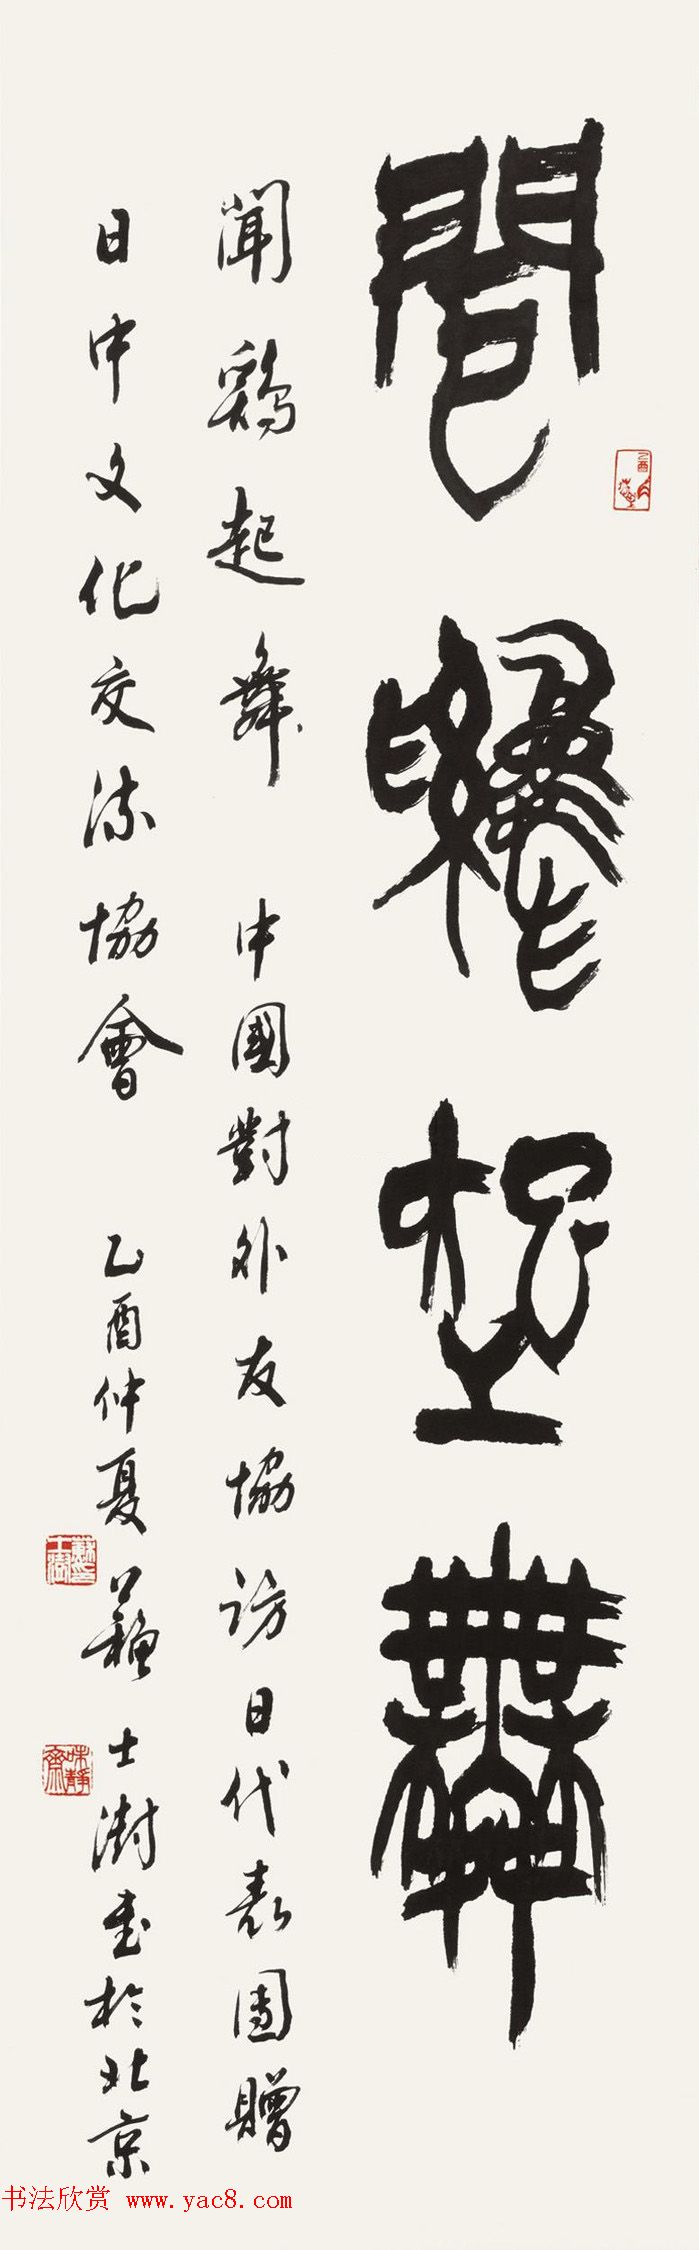 聞鷄起舞
聞鷄起舞 中國對外友協訪日代表團贈
日中文化交流協會 乙酉仲夏 蘇士澍書於北京
乙酉
蘇士澍印
味靜齋
书法欣赏 www.yac8.com